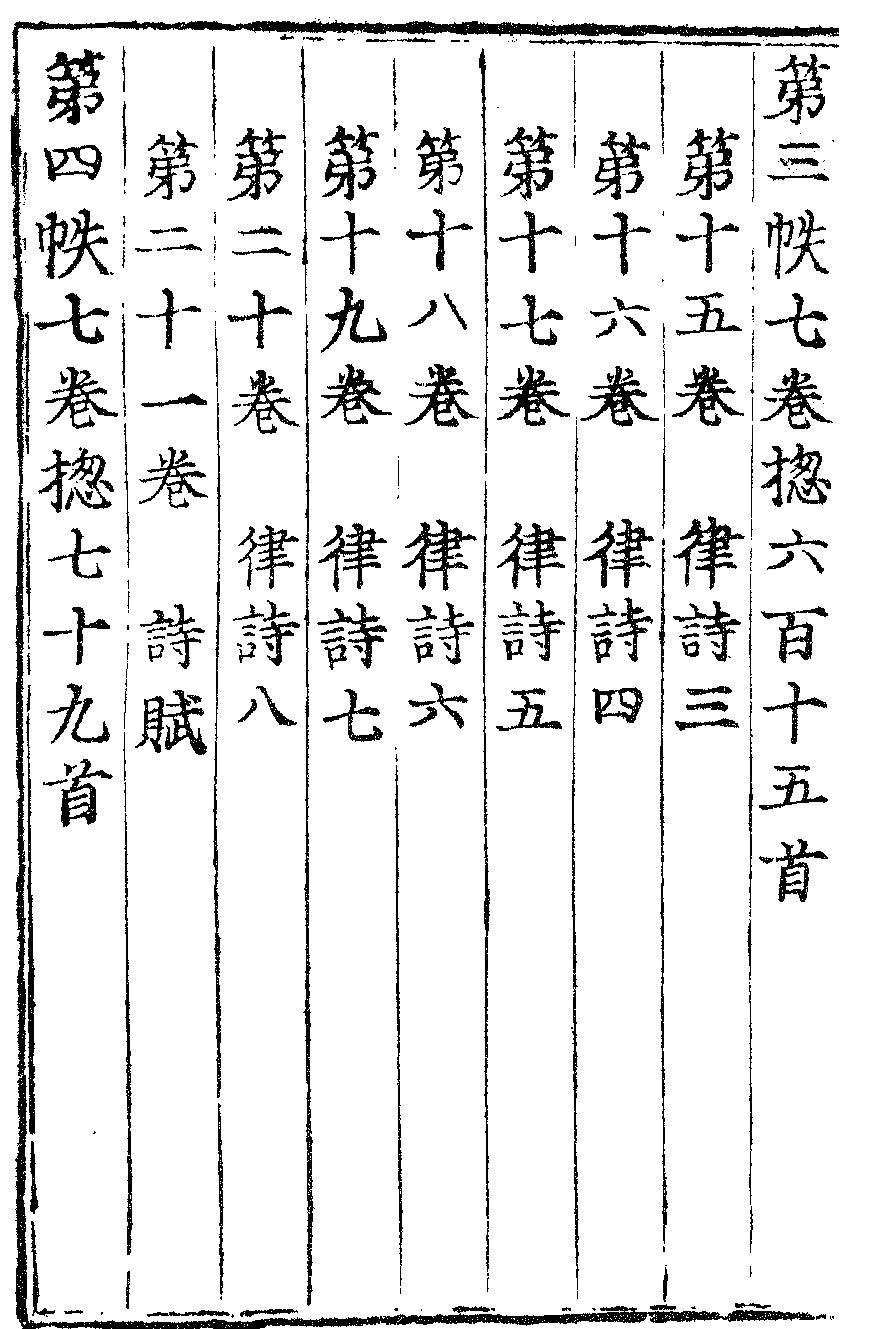 第三帙七卷揔六百十五首
第十五卷　律詩三
第十六卷　律詩四
第十七卷　律詩五
第十八卷　律詩六
第十九卷　律詩七
第二十卷　律詩八
第二十一卷　詩賦
第四帙七卷揔七十九首